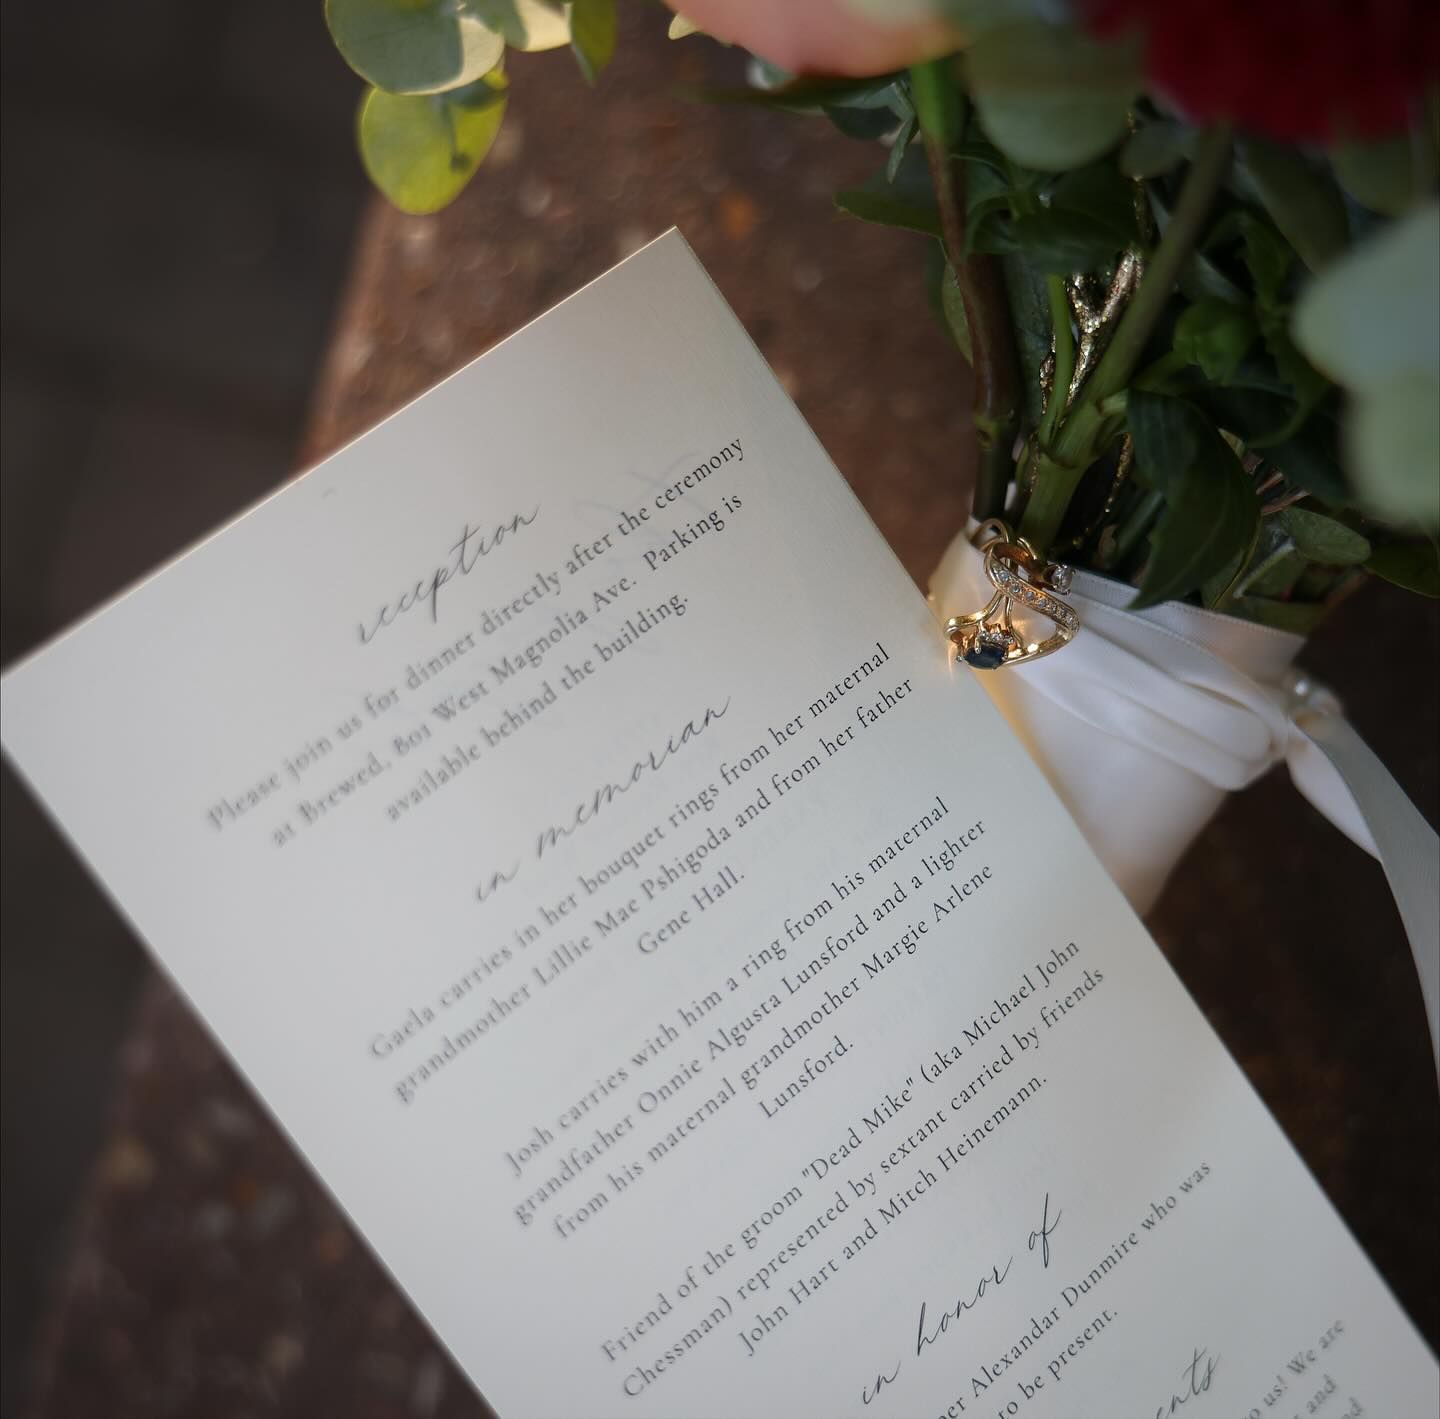 reception
Please join us for dinner directly after the ceremony
at Brewed, 801 West Magnolia Ave. Parking is
available behind the building.
in memorian
Gaela carries in her bouquet rings from her maternal
grandmother Lillie Mae Pshigoda and from her father
Gene Hall.
Josh carries with him a ring from his maternal
grandfather Onnie Algusta Lunsford and a lighter
from his maternal grandmother Margie Arlene
Lunsford.
Friend of the groom "Dead Mike" (aka Michael John
Chessman) represented by sextant carried by friends
John Hart and Mitch Heinemann.
in honor of
Alexandar Dunmire who was
to be present.
us! We are
and